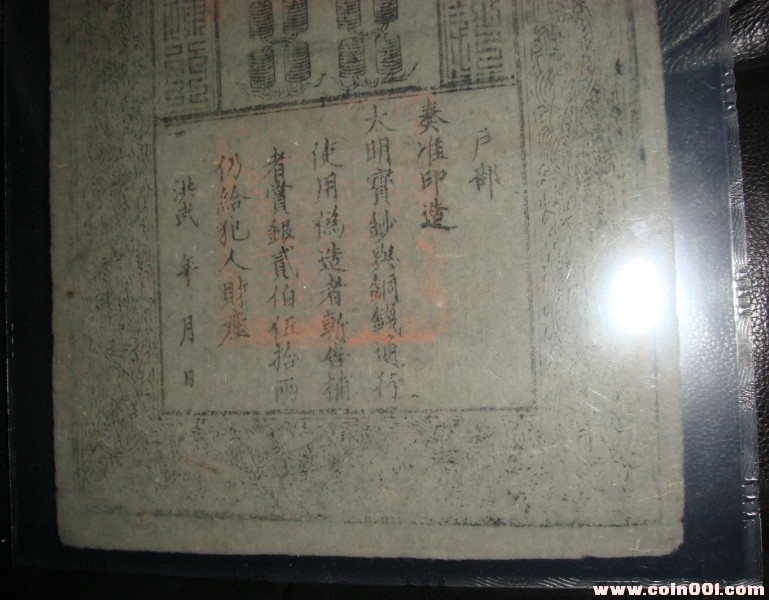 户部
奏准印造
大明寳鈔與銅錢通行
使用偽造者斬告捕
者賞銀貳伯伍拾兩
仍給犯人財產
洪武 年 月 日
www.coin001.com